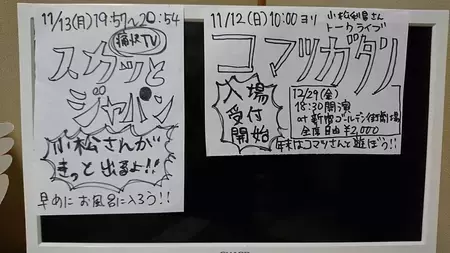 11/13(月)19:57〜20:54
痛快TV
スカッと
ジャパン
小松さんが
きっと出るよ!!
早めにお風呂に入ろう!!
11/12(日)10:00ヨリ
小松利昌さん
トークライブ
コマツガタリ
入場
受付
開始
12/29(金)
18:30開演
at 新宿ゴールデン街劇場
全席自由 ¥2,000
年末はコマツさんと遊ぼう!!